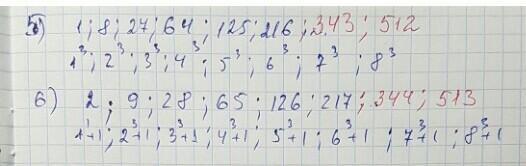 5) 1; 8; 27; 64; 125; 216; 343; 512
1³; 2³; 3³; 4³; 5³; 6³; 7³; 8³
6) 2; 9; 28; 65; 126; 217; 344; 513
1³+1; 2³+1; 3³+1; 4³+1; 5³+1; 6³+1; 7³+1; 8³+1